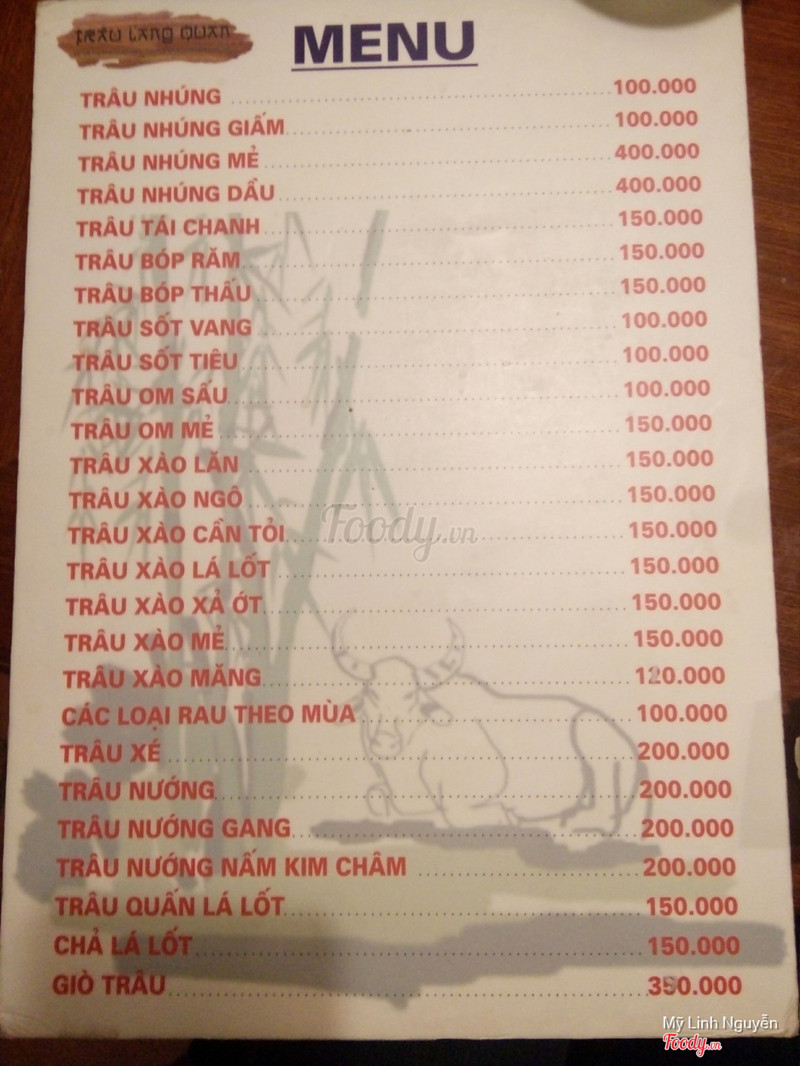 TRÂU LANG QUÁN
MENU
TRÂU NHÚNG ........ 100.000
TRÂU NHÚNG GIẤM ........ 100.000
TRÂU NHÚNG MẺ ........ 400.000
TRÂU NHÚNG DẦU ........ 400.000
TRÂU TÁI CHANH ........ 150.000
TRÂU BÓP RĂM ........ 150.000
TRÂU BÓP THẤU ........ 150.000
TRÂU SỐT VANG ........ 100.000
TRÂU SỐT TIÊU ........ 100.000
TRÂU OM SẤU ........ 100.000
TRÂU OM MẺ ........ 150.000
TRÂU XÀO LĂN ........ 150.000
TRÂU XÀO NGÔ ........ 150.000
TRÂU XÀO CẦN TỎI ........ 150.000
TRÂU XÀO LÁ LỐT ........ 150.000
TRÂU XÀO XẢ ỚT ........ 150.000
TRÂU XÀO MẺ ........ 150.000
TRÂU XÀO MĂNG ........ 120.000
CÁC LOẠI RAU THEO MÙA ........ 100.000
TRÂU XÉ ........ 200.000
TRÂU NƯỚNG ........ 200.000
TRÂU NƯỚNG GANG ........ 200.000
TRÂU NƯỚNG NẤM KIM CHÂM ........ 200.000
TRÂU QUẤN LÁ LỐT ........ 150.000
CHẢ LÁ LỐT ........ 150.000
GIÒ TRÂU ........ 350.000
Foody.vn
Mỹ Linh Nguyễn
Foody.vn